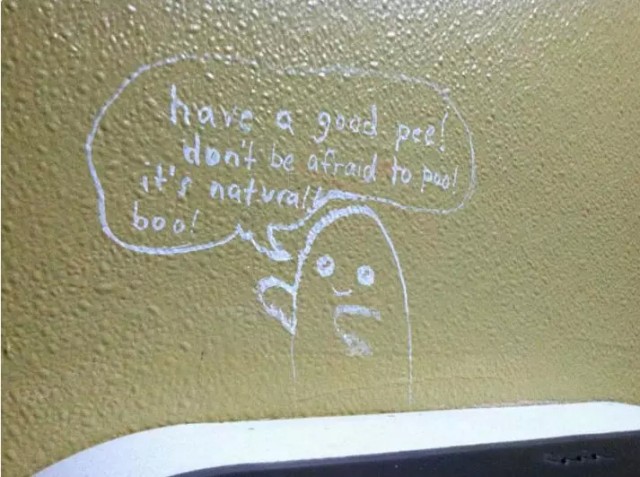 have a good pee!
don't be afraid to poo!
it's natural!
boo!